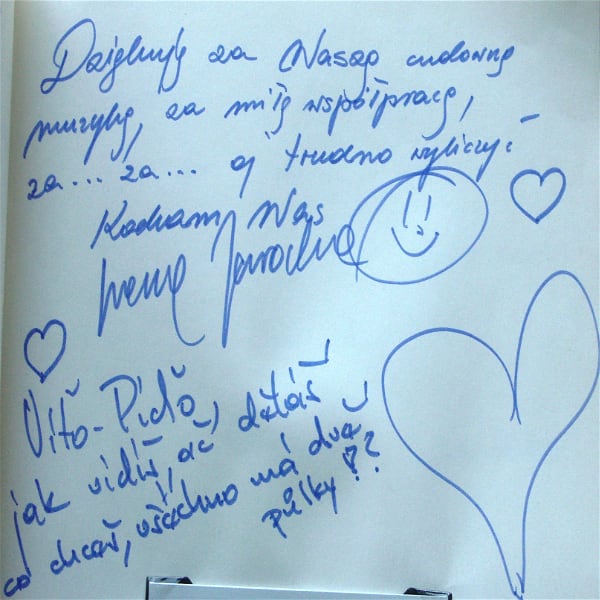 Dziękuję za Waszą cudowną
muzykę, za miłą współpracę,
za... za... oj trudno wyliczyć
Kocham Was
Irena Jarocka
Víťo-Píďo,
jak vidíš, ač děláš
co chceš, všechno má dvě
půlky!?